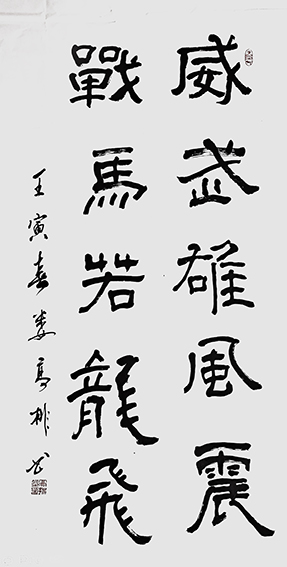 威武雄風震
戰馬若龍飛
壬寅春娄高彬書